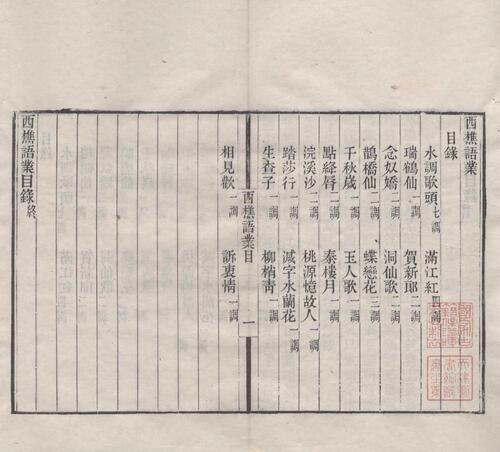 西樵語業
目錄
水調歌頭七調　滿江紅四調
瑞鶴仙一調　賀新郞二調
念奴嬌二調　洞仙歌二調
鵲橋仙二調　蝶戀花三調
千秋歲一調　玉人歌一調
點絳脣二調　秦樓月二調
浣溪沙二調　桃源憶故人一調
踏莎行一調　减字木蘭花一調
生查子一調　柳梢靑一調
西樵語業目　一
相見歡一調　訴衷情一調
西樵語業目錄終